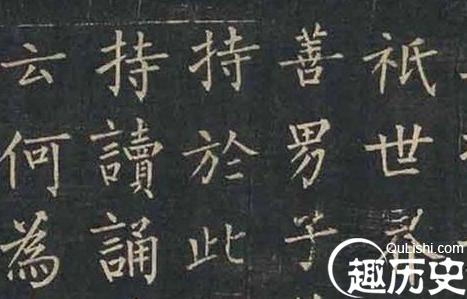 祇世界
善男子
持於此
持讀誦
云何為
QuLishi.com
趣历史